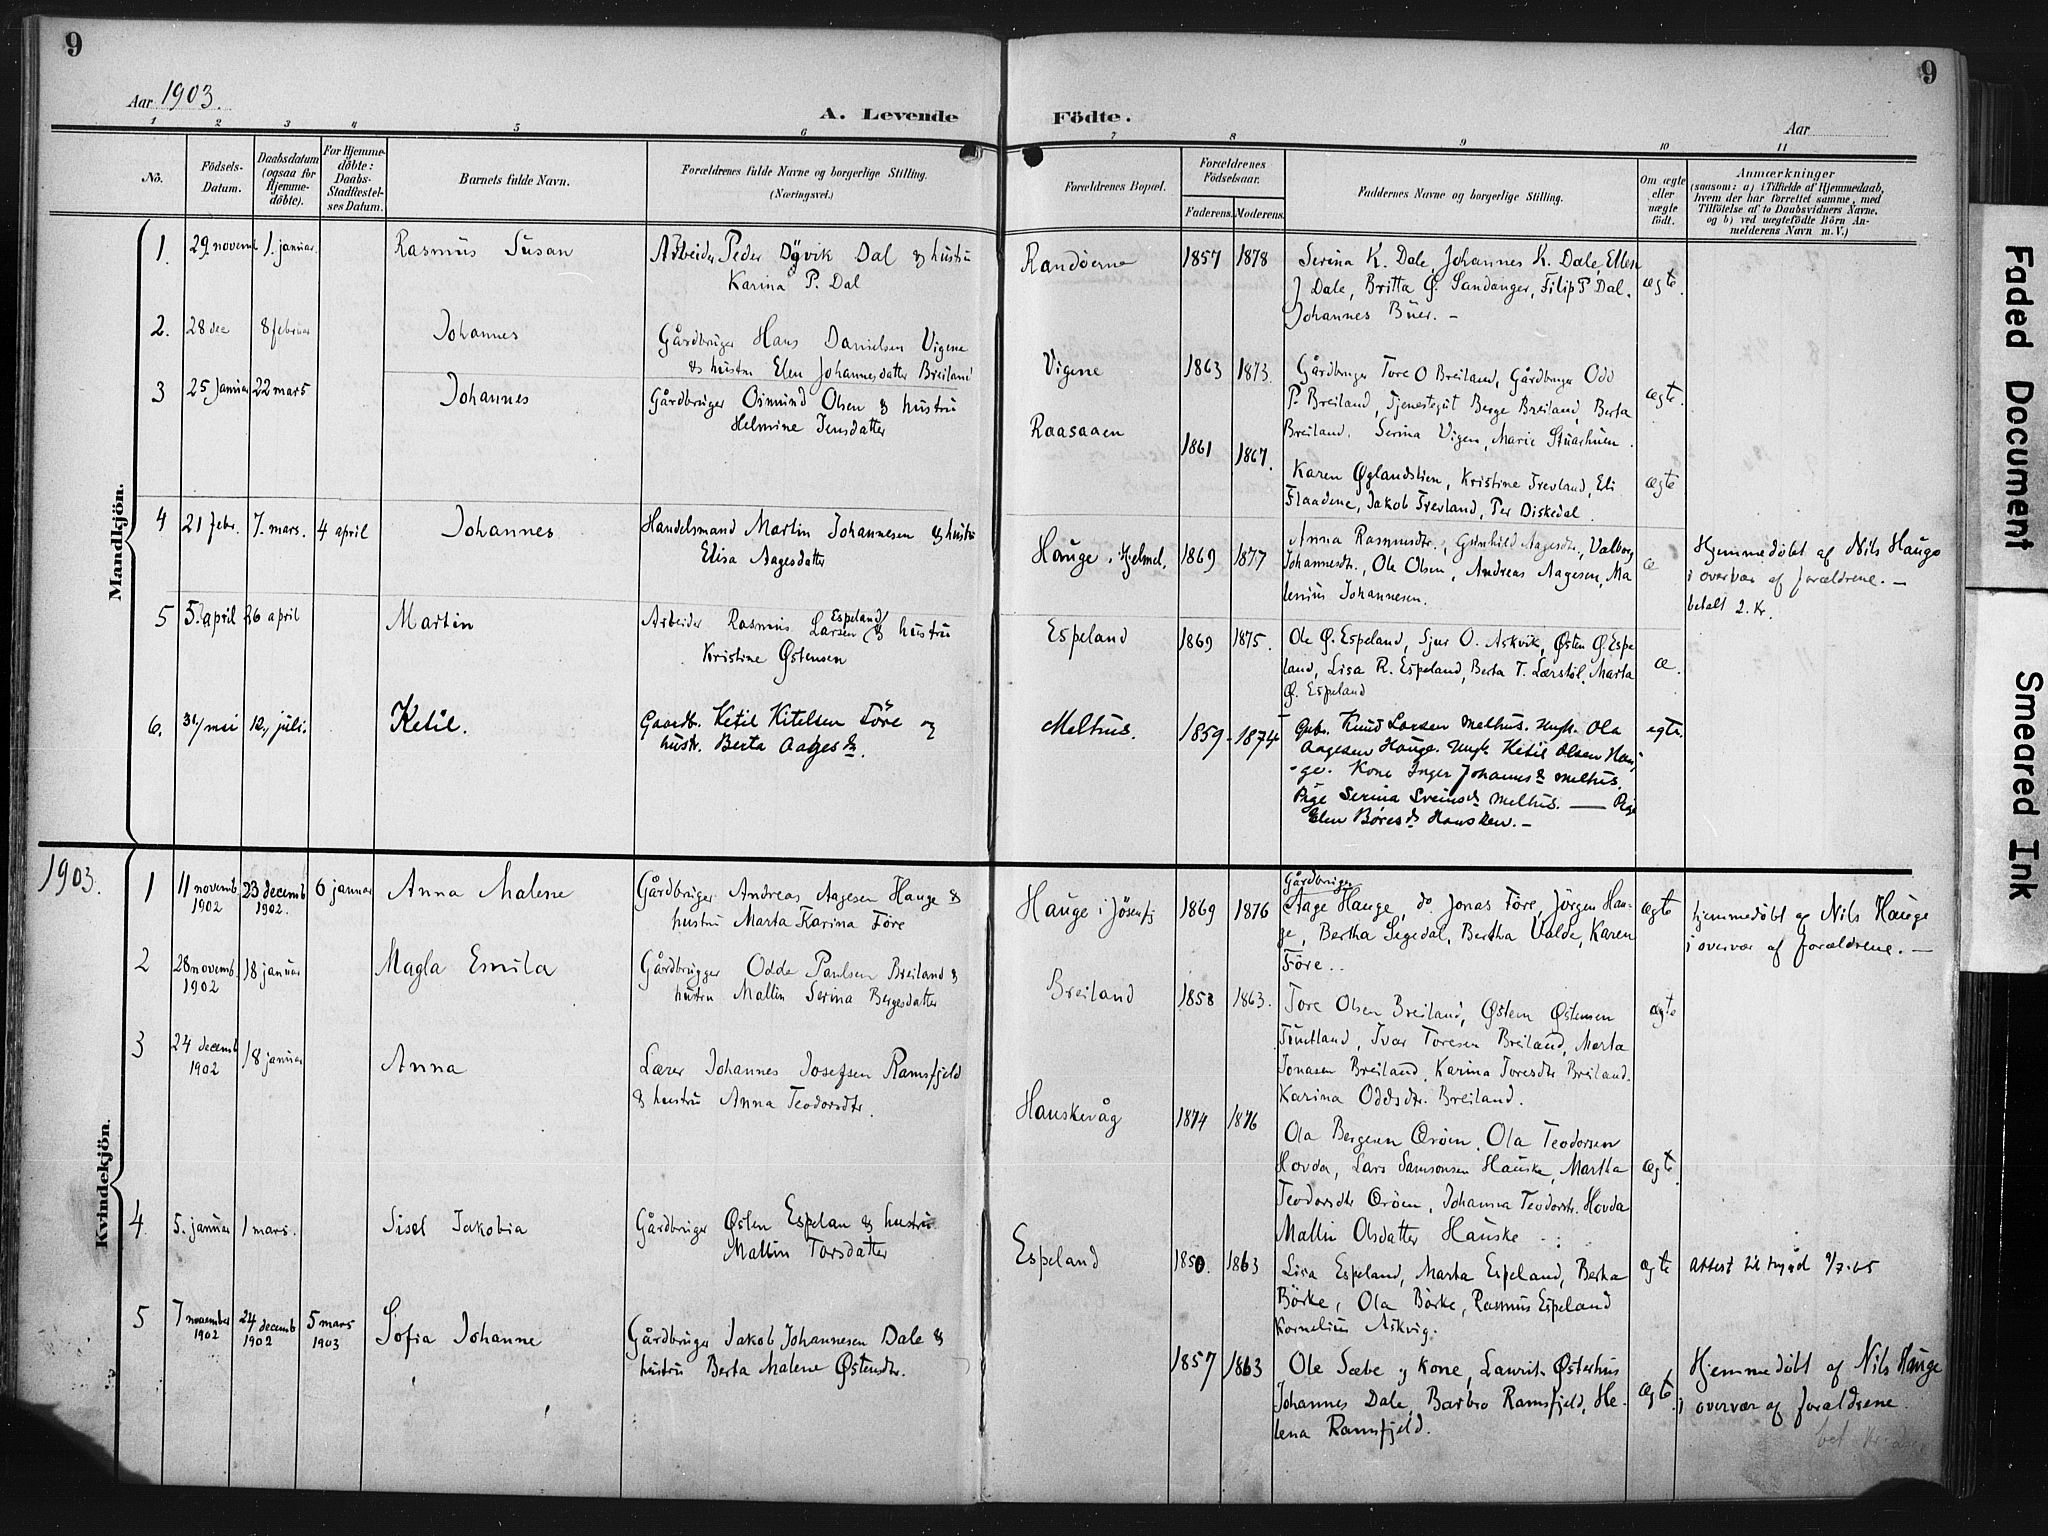 9
9
Aar 1903.
A. Levende Födte.
Aar
1 2 3 4 5 6 7 8 9 10 11
No.
Födsels-
Datum.
Daabsdatum
(ogsaa for
Hjemme-
döbte).
For Hjemme-
döbte:
Daabs-
Stadfæstel-
ses Datum.
Barnets fulde Navn.
Forældrenes fulde Navne og borgerlige Stilling.
(Næringsvei.)
Forældrenes Bopæl.
Forældrenes
Födselsaar.
Faderens. Moderens.
Faddernes Navne og borgerlige Stilling.
Om ægte
eller
uægte
födt.
Anmærkninger
(saasom: a) i Tilfælde af Hjemmedaab,
hvem der har forrettet samme, med
Tilföielse af to Daabsvidners Navne,
og b) ved uegtefödte Börn An-
melderens Navn m. V.)
Mandkjön.
1. 29 novemb 1. januar. Rasmus Susan
Arbeider Peder Døvik Dal & hustru
Karina P. Dal
Randøerne 1857 1878
Serina K. Dale, Johannes K. Dale, Ellen
J Dale, Britta Ø. Sandanger, Filip P Dal.
Johannes Büer. –
ægte.
2. 28 dec 8 februar Johannes
Gårdbruger Hans Danielsen Vigene
& hustru Elen Johannesdatter Breiland
Vigene 1863 1873.
Gårdbruger Tore O Breiland, Gårdbruger Odd
P. Breiland, Tjenestegüt Berge Breiland, Berta
Breiland. Serina Vigen, Marie
ægte.
3 25 Januar 22 mars Johannes
Gårdbruger Osmund Olsen & hustru
Helmine Jensdatter
Raasaaen 1861 1867.
Karen Øglandslien, Kristine Trevland, Eli
Flaadene, Jakob Trevland, Per Diskedal.
ægte
4 21 febr. 7. mars. 4 april Johannes
Handelsmand Martin Johannesen & hustru
Elisa Aagesdatter
Hauge i Hjelmel. 1869 1877
Anna Rasmusdtr., Gunhild Aagesdtr., Valborg
Johannesdtr., Ole Olsen, Andreas Aagesen, Ma
lenius Johannesen.
æ
Hjemmedöbt af Nils Hauge
i overvær af forældrene. –
betalt 2. Kr.
5 5. april 26 april Martin
Arbeider Rasmus Larsen Espeland & hustru
Kristine Østensen
Espeland 1869 1875.
Ole Ø. Espeland, Sjur O. Askvik, Østen Ø. Espe
land, Lisa R. Espeland, Berta T. Lærstøl, Marta
Ø. Espeland
æ.
6. 31/mei 12, juli. Ketil.
Gaardb. Ketil Kitelsen Före og
hustr. Berta Aagesdr.
Melhus. 1859 - 1874
Gbr. Knud Larsen Melhus. Ungk. Ola
Aagesen Hauge. Ungk. Ketil Olsen Hau
-ge. Kone Inger Johannesdr Melhus.
Pige Serina Sveinsdr Melhus. — Pige
Elen Böresdr Hausken. –
egte.
1903.
Kvindekjön.
1 11 novemb 1902 23 decemb 1902. 6 januar Anna Malene
Gårdbruger Andreas Aagesen Hauge &
hustru Marta Karina Före
Hauge i Jösenfj 1869 1876
Gårdbruger
Aage Hauge, do Jonas Före, Jörgen Hau-
ge, Bertha Segedal, Bertha Valde, Karen
Före..
ægte
hjemmedöbt af Nils Hauge
i overvær af forældrene. –
2 28 novemb. 1902 18 januar Magla Emila
Gårdbrugger Odde Paulsen Breiland &
hustru Mallin Serina Bergesdatter
Breiland 1858 1863.
Tore Olsen Breiland, Østen Østensen
Tuntland, Ivar Toresen Breiland, Marta
Jonasen Breiland, Karina Toresdtr Breiland.
Karina Oddsdtr. Breiland.
ægte
3 24 decemb 1902 18 januar Anna
Lærer Johannes Josefsen Ramsfjeld
& hustru Anna Teodorsdtr.
Hauskevåg 1874 1876
Ola Bergesen Ørøen, Ola Teodorsen
Hovda, Lars Samsonsen Hauske, Martha
Teodorsdtr Ørøen, Johanna Teodorstr. Hovda
Mallin Olsdatter Hauske
ægte
4 5. januar 1 mars. Sisel Jakobia
Gårdbruger Østen Espelan & hustru
Mallin Torsdatter
Espeland 1850. 1863
Lisa Espeland, Marta Espeland, Berta
Börke, Ola Börke, Rasmus Espeland
Kornelius Askvig.
ægte
Attest til 9/7-65
5 7 november 1902 24 decemb 1902 5 mars 1903 Sofia Johanne
Gårdbruger Jakob Johannesen Dale &
hustru Berta Malene Østensdtr.
1857 1863
Ole Sæbe og Kone, Laurits Østerhus
Johannes Dale, Barbro Ramsfjeld, He-
lena Ramsfjeld.
ægte.
Hjemmedöbt af Nils Hauge
i overvær af forældrene.
Faded Document
Smeared Ink